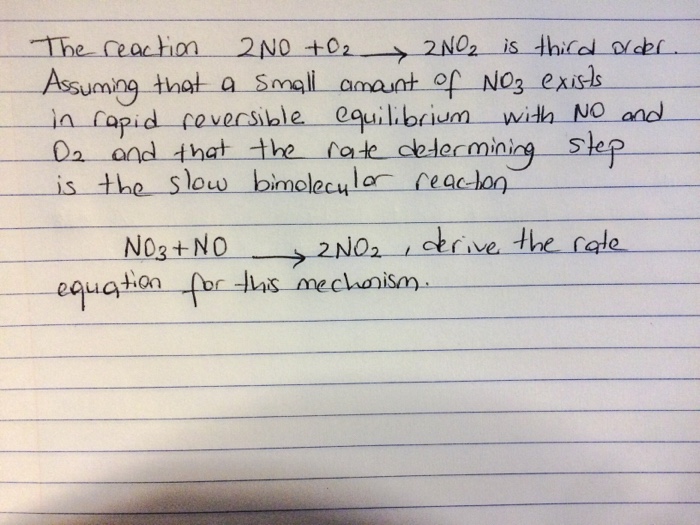 The reaction 2NO + O₂ → 2NO₂ is third order.
Assuming that a small amount of NO₃ exists
in rapid reversible equilibrium with NO and
O₂ and that the rate determining step
is the slow bimolecular reaction
NO₃ + NO → 2NO₂ , derive the rate
equation for this mechanism.